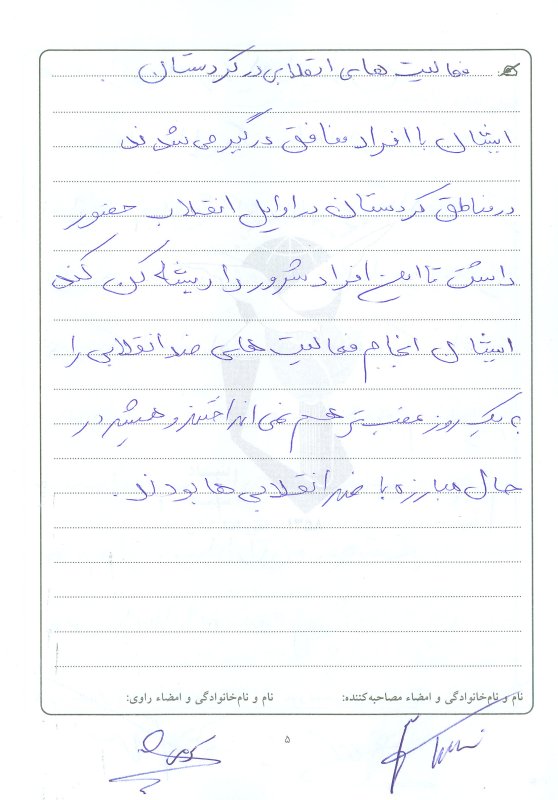 فعالیت های انقلابی در کردستان
ایشان با افراد منافق درگیر می شدند
در مناطق کردستان در اوایل انقلاب حضور
داشت تا این افراد شرور را ریشه کن کند
ایشان انجام فعالیت های ضد انقلابی را
به یک روز عقب تر هم نمی انداختند و همیشه در
حال مبارزه با ضد انقلابی ها بودند.
نام و نام‌خانوادگی و امضاء مصاحبه‌کننده: نام و نام‌خانوادگی و امضاء راوی:
۵